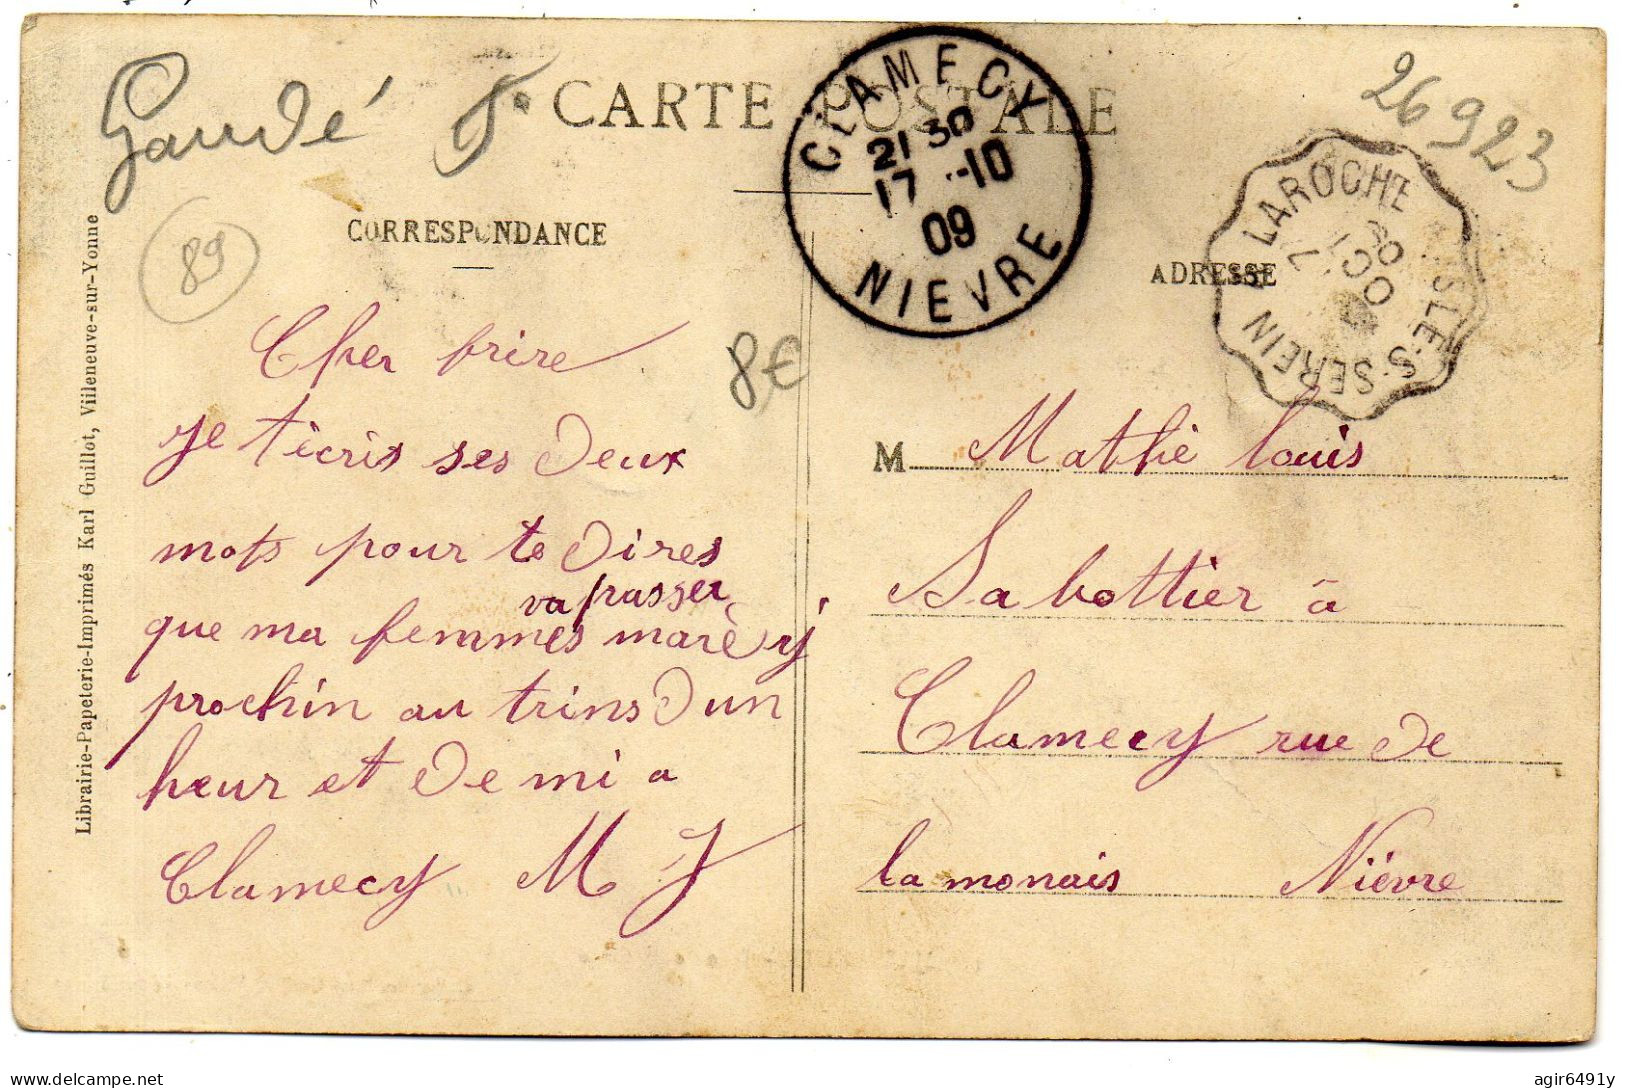 Gaudé
CARTE POSTALE
26923
CLAMECY
21 30
17 -10
09
NIEVRE
LAROCHE A L'ISLE-S-SEREIN
7
OCT
09
89
CORRESPONDANCE
ADRESSE
8€
Librairie-Papeterie-Imprimés Karl Guillot, Villeneuve-sur-Yonne
Cher frire
je t'icris ses deux
mots pour te dires
va passer
que ma femmes marèdy
prochin au trins d un
heur et de mi a
Clamecy M J
M Mathé louis
Sabottier à
Clamecy rue de
la monais Niévre
delcampe.net
agir6491y